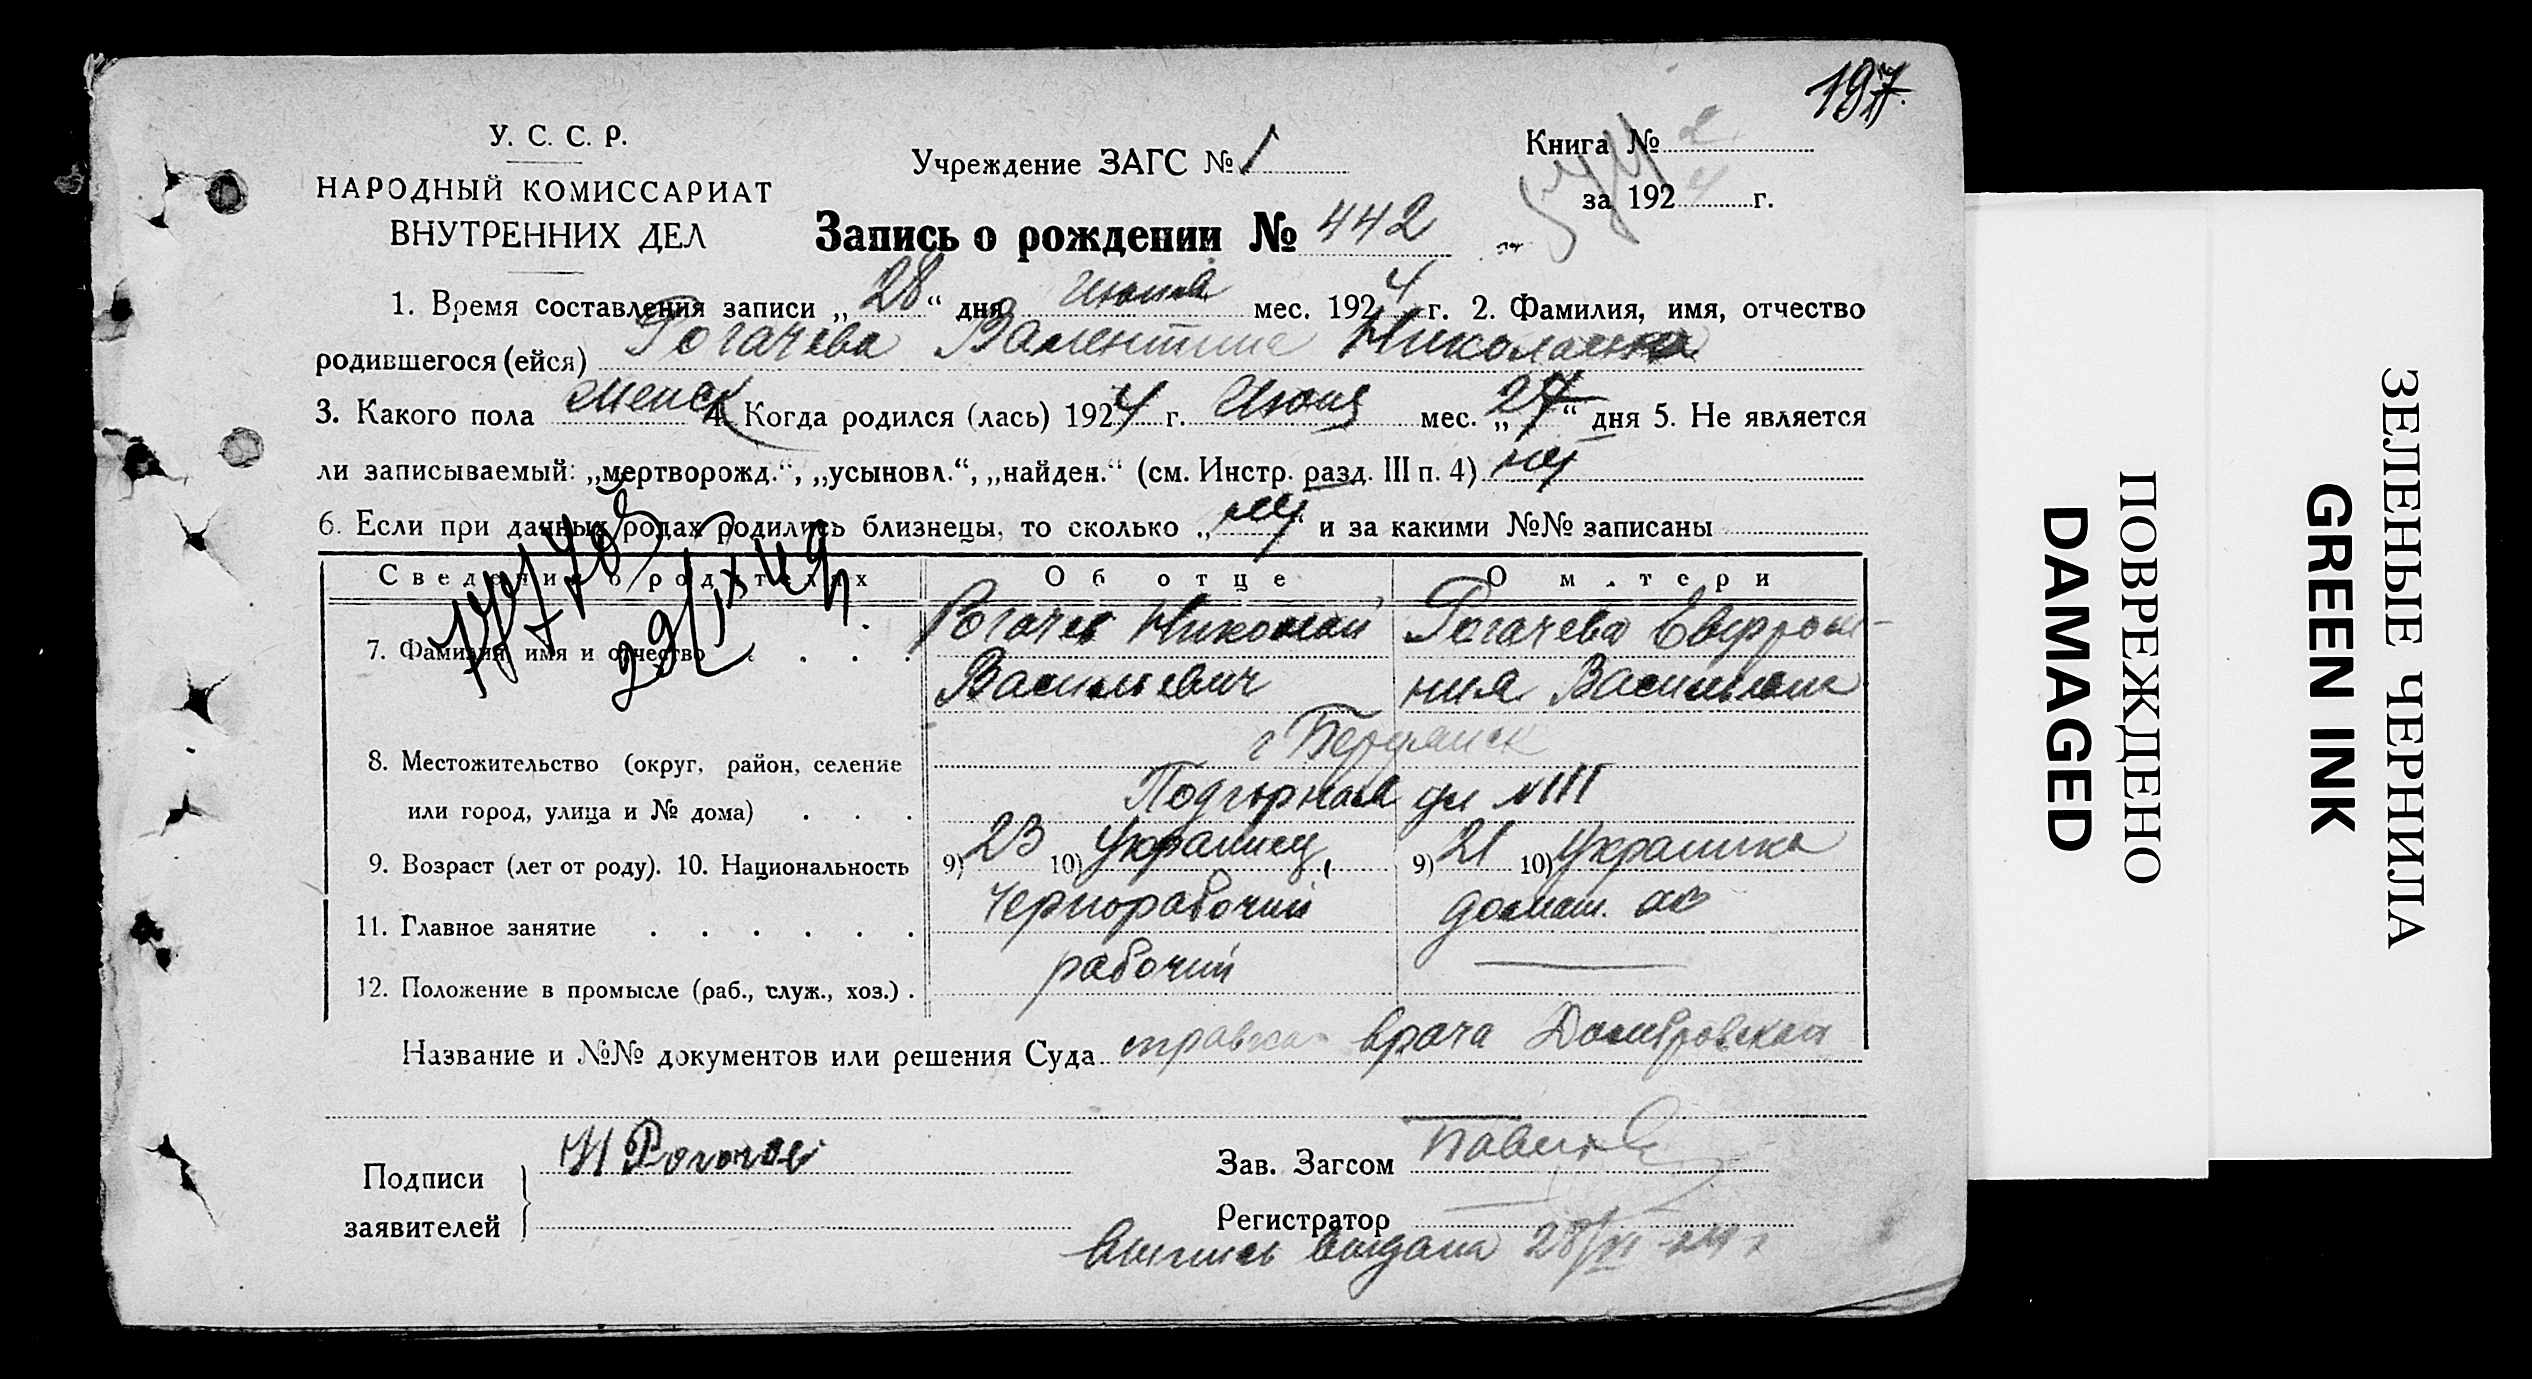 197.
У. С. С. Р.
НАРОДНЫЙ КОМИССАРИАТ
ВНУТРЕННИХ ДЕЛ
Учреждение ЗАГС № 1
Книга № 2
за 1924 г.
544
Запись о рождении № 442
1. Время составления записи „28“ дня июня мес. 1924 г. 2. Фамилия, имя, отчество
родившегося (ейся) Рогачева Валентина Николаевна
3. Какого пола женск 4. Когда родился (лась) 1924 г. Июня мес. „27“ дня 5. Не является
ли записываемый: „мертворожд.“, „усыновл.“, „найден.“ (см. Инстр. разд. III п. 4) нет
6. Если при данных родах родились близнецы, то сколько „нет“ и за какими №№ записаны
Сведения о родителях
Об отце
О матери
7. Фамилия, имя и отчество
Рогачев Николай
Васильевич
Рогачева Евфроси-
ния Васильевна
8. Местожительство (округ, район, селение
или город, улица и № дома)
г Бердянск
Подгорная ул №111
9. Возраст (лет от роду). 10. Национальность
9) 23 10) Украинец
9) 21 10) Украинка
11. Главное занятие
Чернорабочий
домаш. хоз
12. Положение в промысле (раб., служ., хоз.)
рабочий
Название и №№ документов или решения Суда справка врача Домбровской
Подписи
заявителей
Н Рогачев
Зав. Загсом
Регистратор
Выпись выдана 28/VI-24 г
ПОВРЕЖДЕНО
DAMAGED
ЗЕЛЕНЫЕ ЧЕРНИЛА
GREEN INK